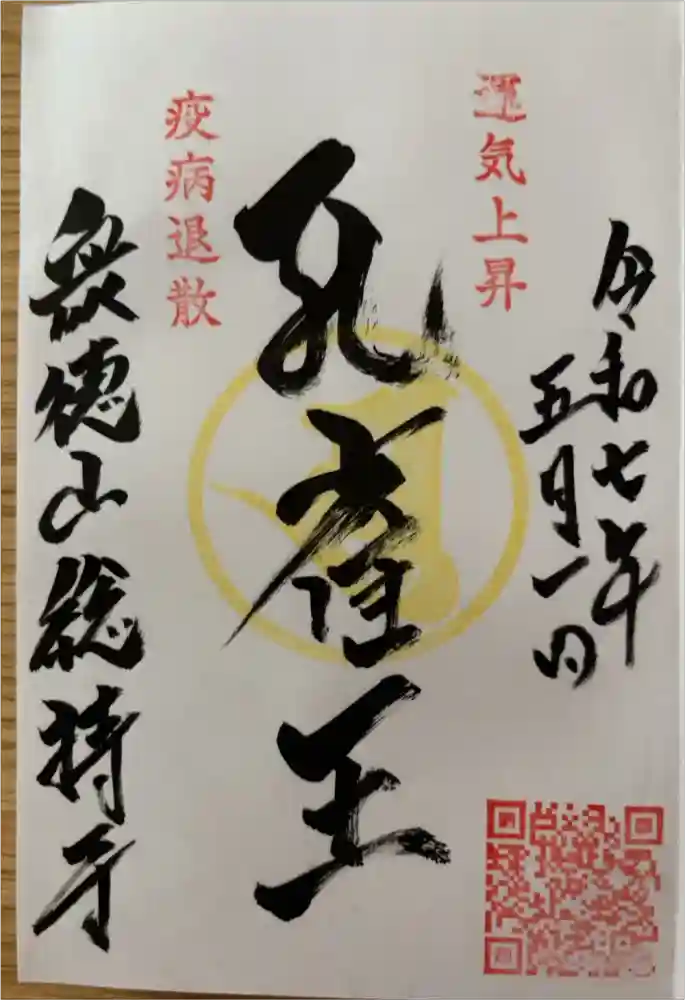 令和七年
五月一日
運気上昇
孔雀王
疫病退散
衆徳山総持寺